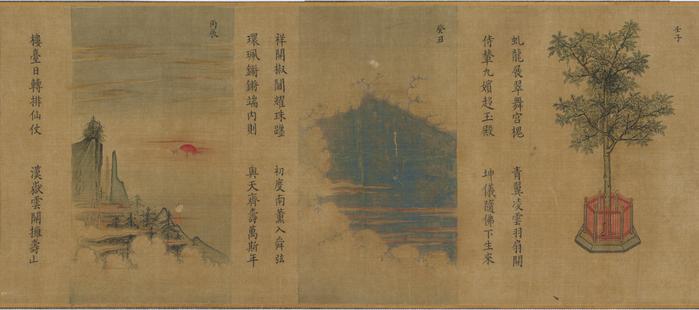 壬子
虬龍展翠舞宮槐 青翼凌雲羽扇開
侍輦九嬪趨玉殿 坤儀隨佛下生來
癸丑
祥開椒閫耀珠躔 初度南薰入舜弦
環珮鏘鏘端內則 與天齊壽萬斯年
丙辰
樓臺日轉排仙仗 漢嶽雲開擁壽山